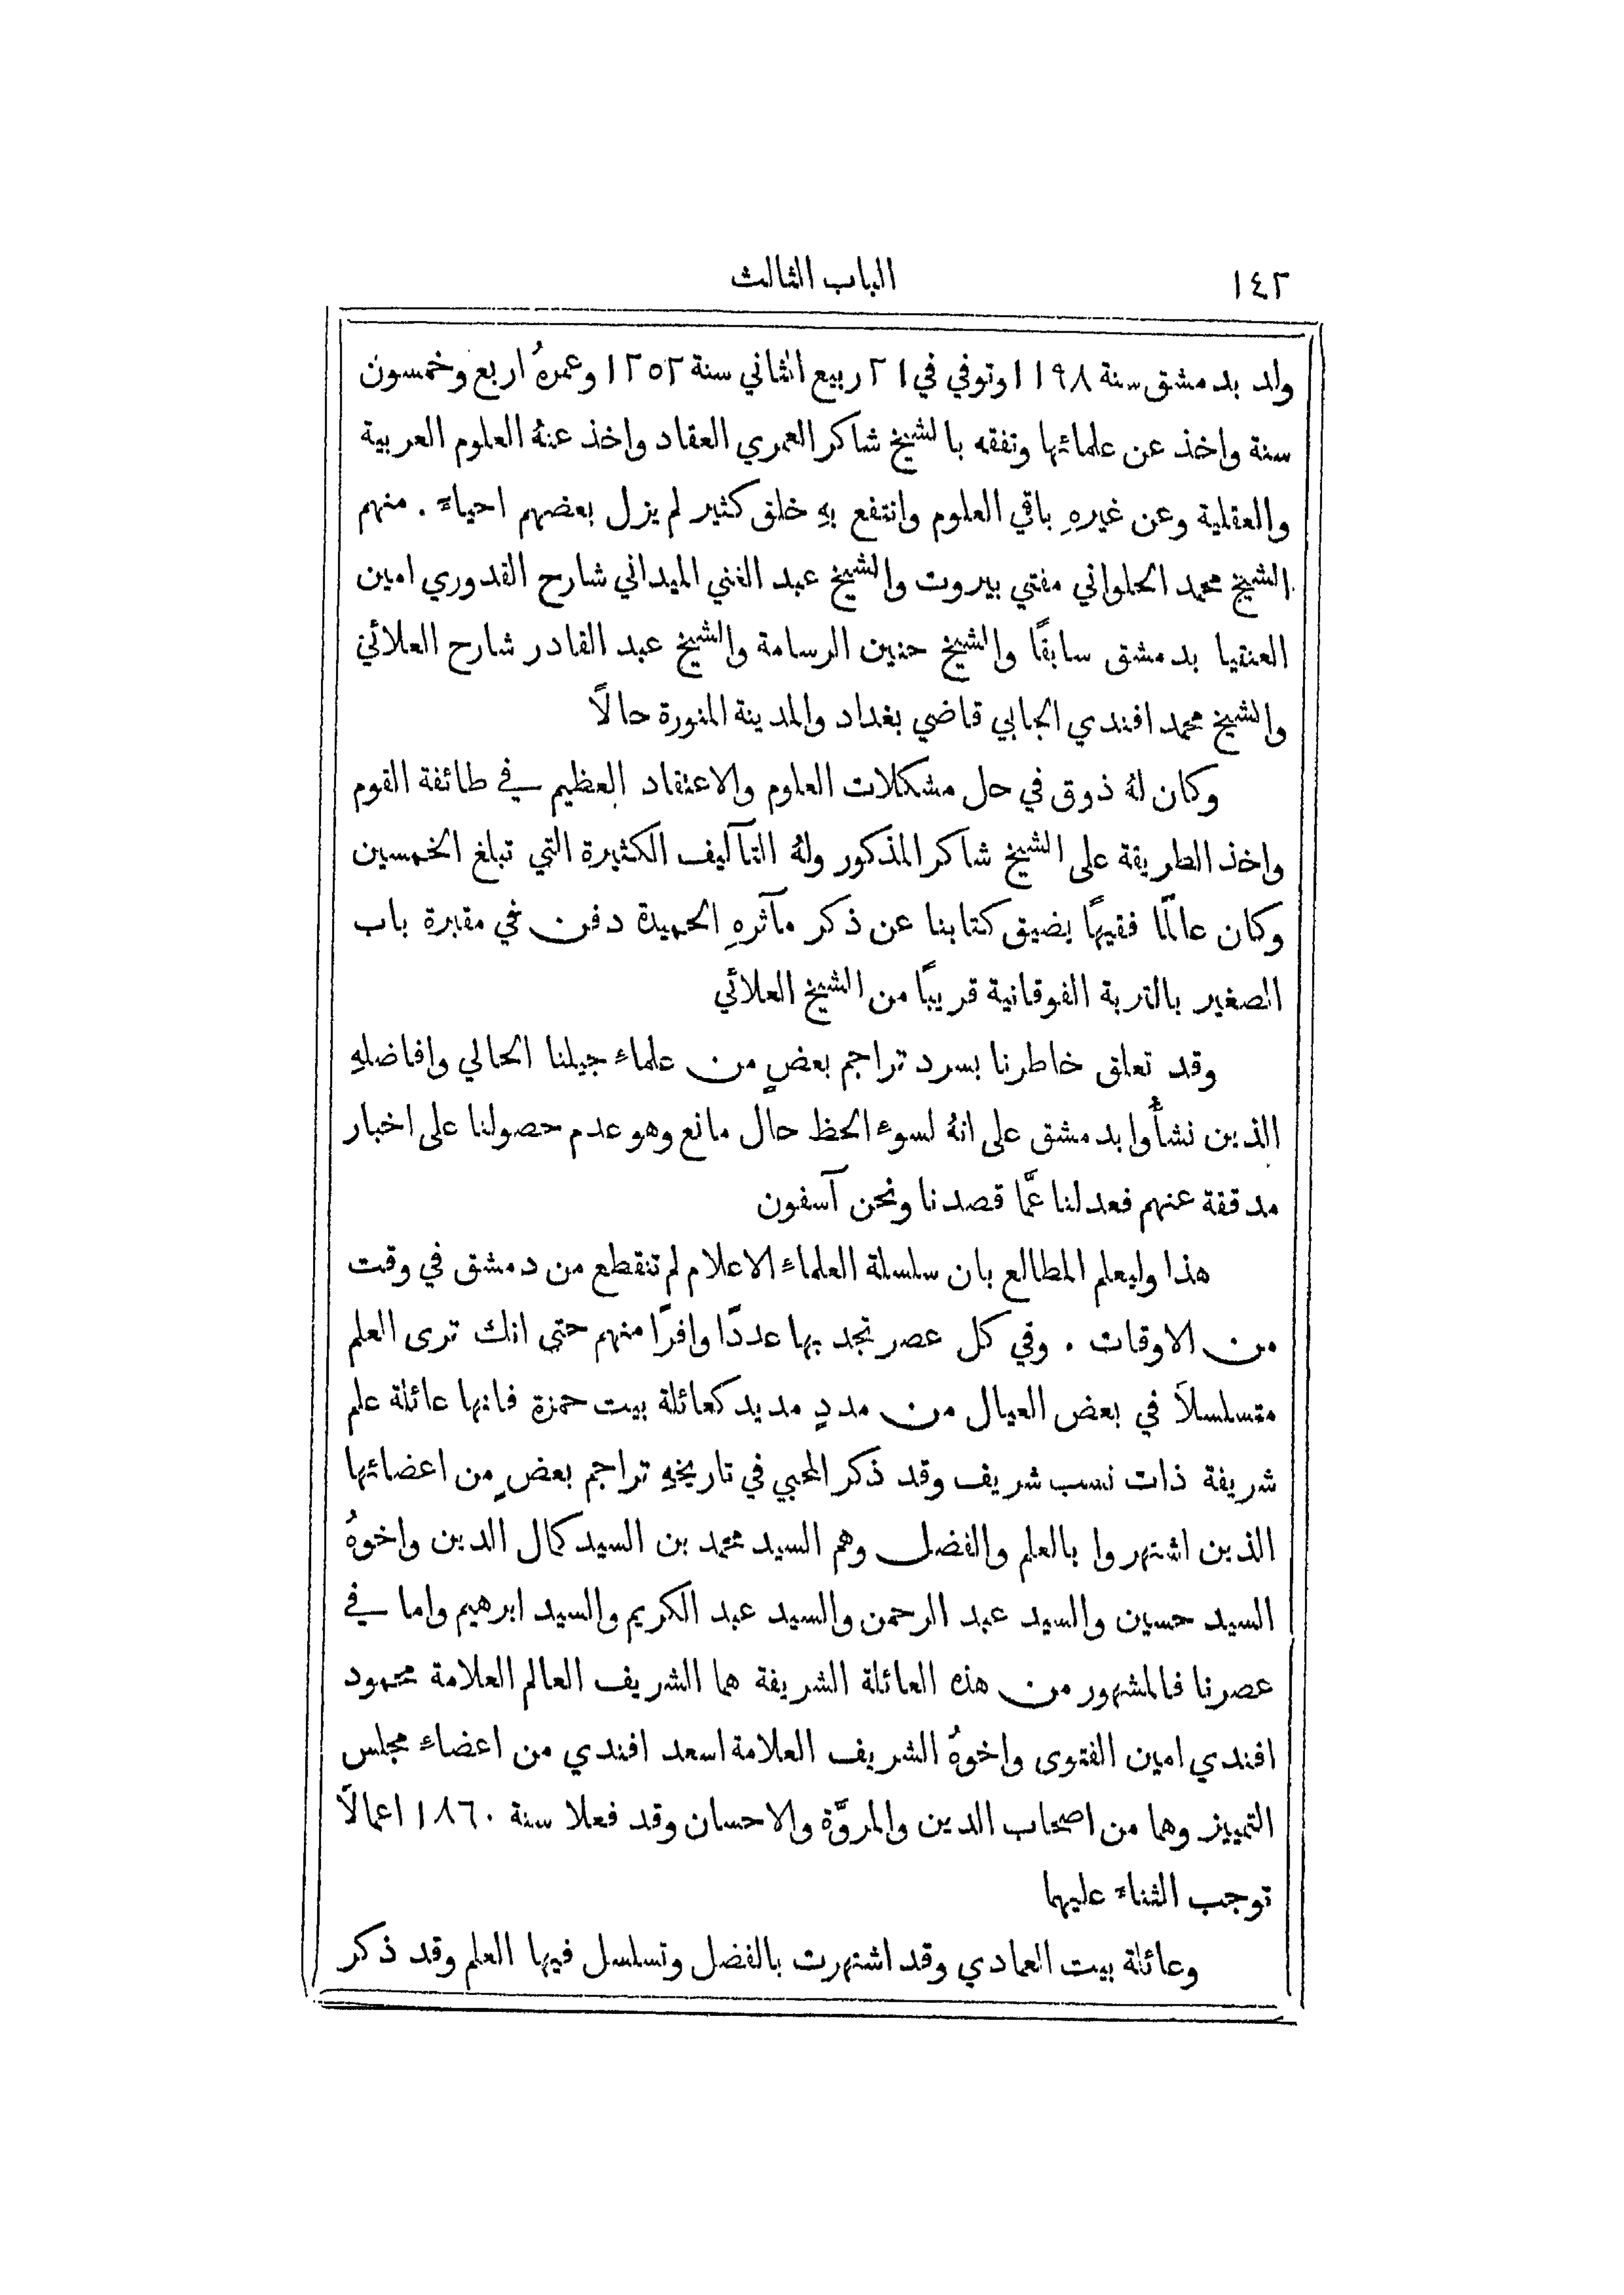 ١٤٢
الباب الثالث
ولد بدمشق سنة ١١٩٨ وتوفي في ٢١ ربيع الثاني سنة ١٢٥٢ وعمرهُ اربع وخمسون
سنة واخذ عن علمائها وتفقه بالشيخ شاكر العمري العقاد واخذ عنهُ العلوم العربية
والعقلية وعن غيرهِ باقي العلوم وانتفع بهِ خلق كثير لم يزل بعضهم احياء . منهم
الشيخ محمد الحلواني مفتي بيروت والشيخ عبد الغني الميداني شارح القدوري امين
العنقيا بدمشق سابقًا والشيخ حنين الرسامة والشيخ عبد القادر شارح العلائي
والشيخ محمد افندي الجابي قاضي بغداد والمدينة المنورة حالاً
وكان لهُ ذوق في حل مشكلات العلوم والاعتقاد العظيم في طائفة القوم
واخذ الطريقة على الشيخ شاكر المذكور ولهُ التآليف الكثيرة التي تبلغ الخمسين
وكان عالمًا فقيهًا يضيق كتابنا عن ذكر مآثرهِ الحميدة دفن في مقبرة باب
الصغير بالتربة الفوقانية قريبًا من الشيخ العلائي
وقد تعلق خاطرنا بسرد تراجم بعضٍ من علماء جيلنا الحالي وافاضلهِ
الذين نشأُوا بدمشق على انهُ لسوء الحظ حال مانع وهو عدم حصولنا على اخبار
مدققة عنهم فعدلنا عمَّا قصدنا ونحن آسفون
هذا وليعلم المطالع بان سلسلة العلماء الاعلام لم تنقطع من دمشق في وقت
من الاوقات . وفي كل عصر تجد بها عددًا وافرًا منهم حتى انك ترى العلم
متسلسلاً في بعض العيال من مددٍ مديد كعائلة بيت حمزة فانها عائلة علم
شريفة ذات نسب شريف وقد ذكر المحبي في تاريخهِ تراجم بعضٍ من اعضائها
الذين اشتهروا بالعلم والفضل وهم السيد محمد بن السيد كمال الدين واخوهُ
السيد حسين والسيد عبد الرحمن والسيد عبد الكريم والسيد ابرهيم واما في
عصرنا فالمشهور من هذه العائلة الشريفة هما الشريف العالم العلامة محمود
افندي امين الفتوى واخوهُ الشريف العلامة اسعد افندي من اعضاء مجلس
التمييز وهما من اصحاب الدين والمروَّة والاحسان وقد فعلا سنة ١٨٦٠ اعمالاً
توجب الثناء عليهما
وعائلة بيت العمادي وقد اشتهرت بالفضل وتسلسل فيها العلم وقد ذكر